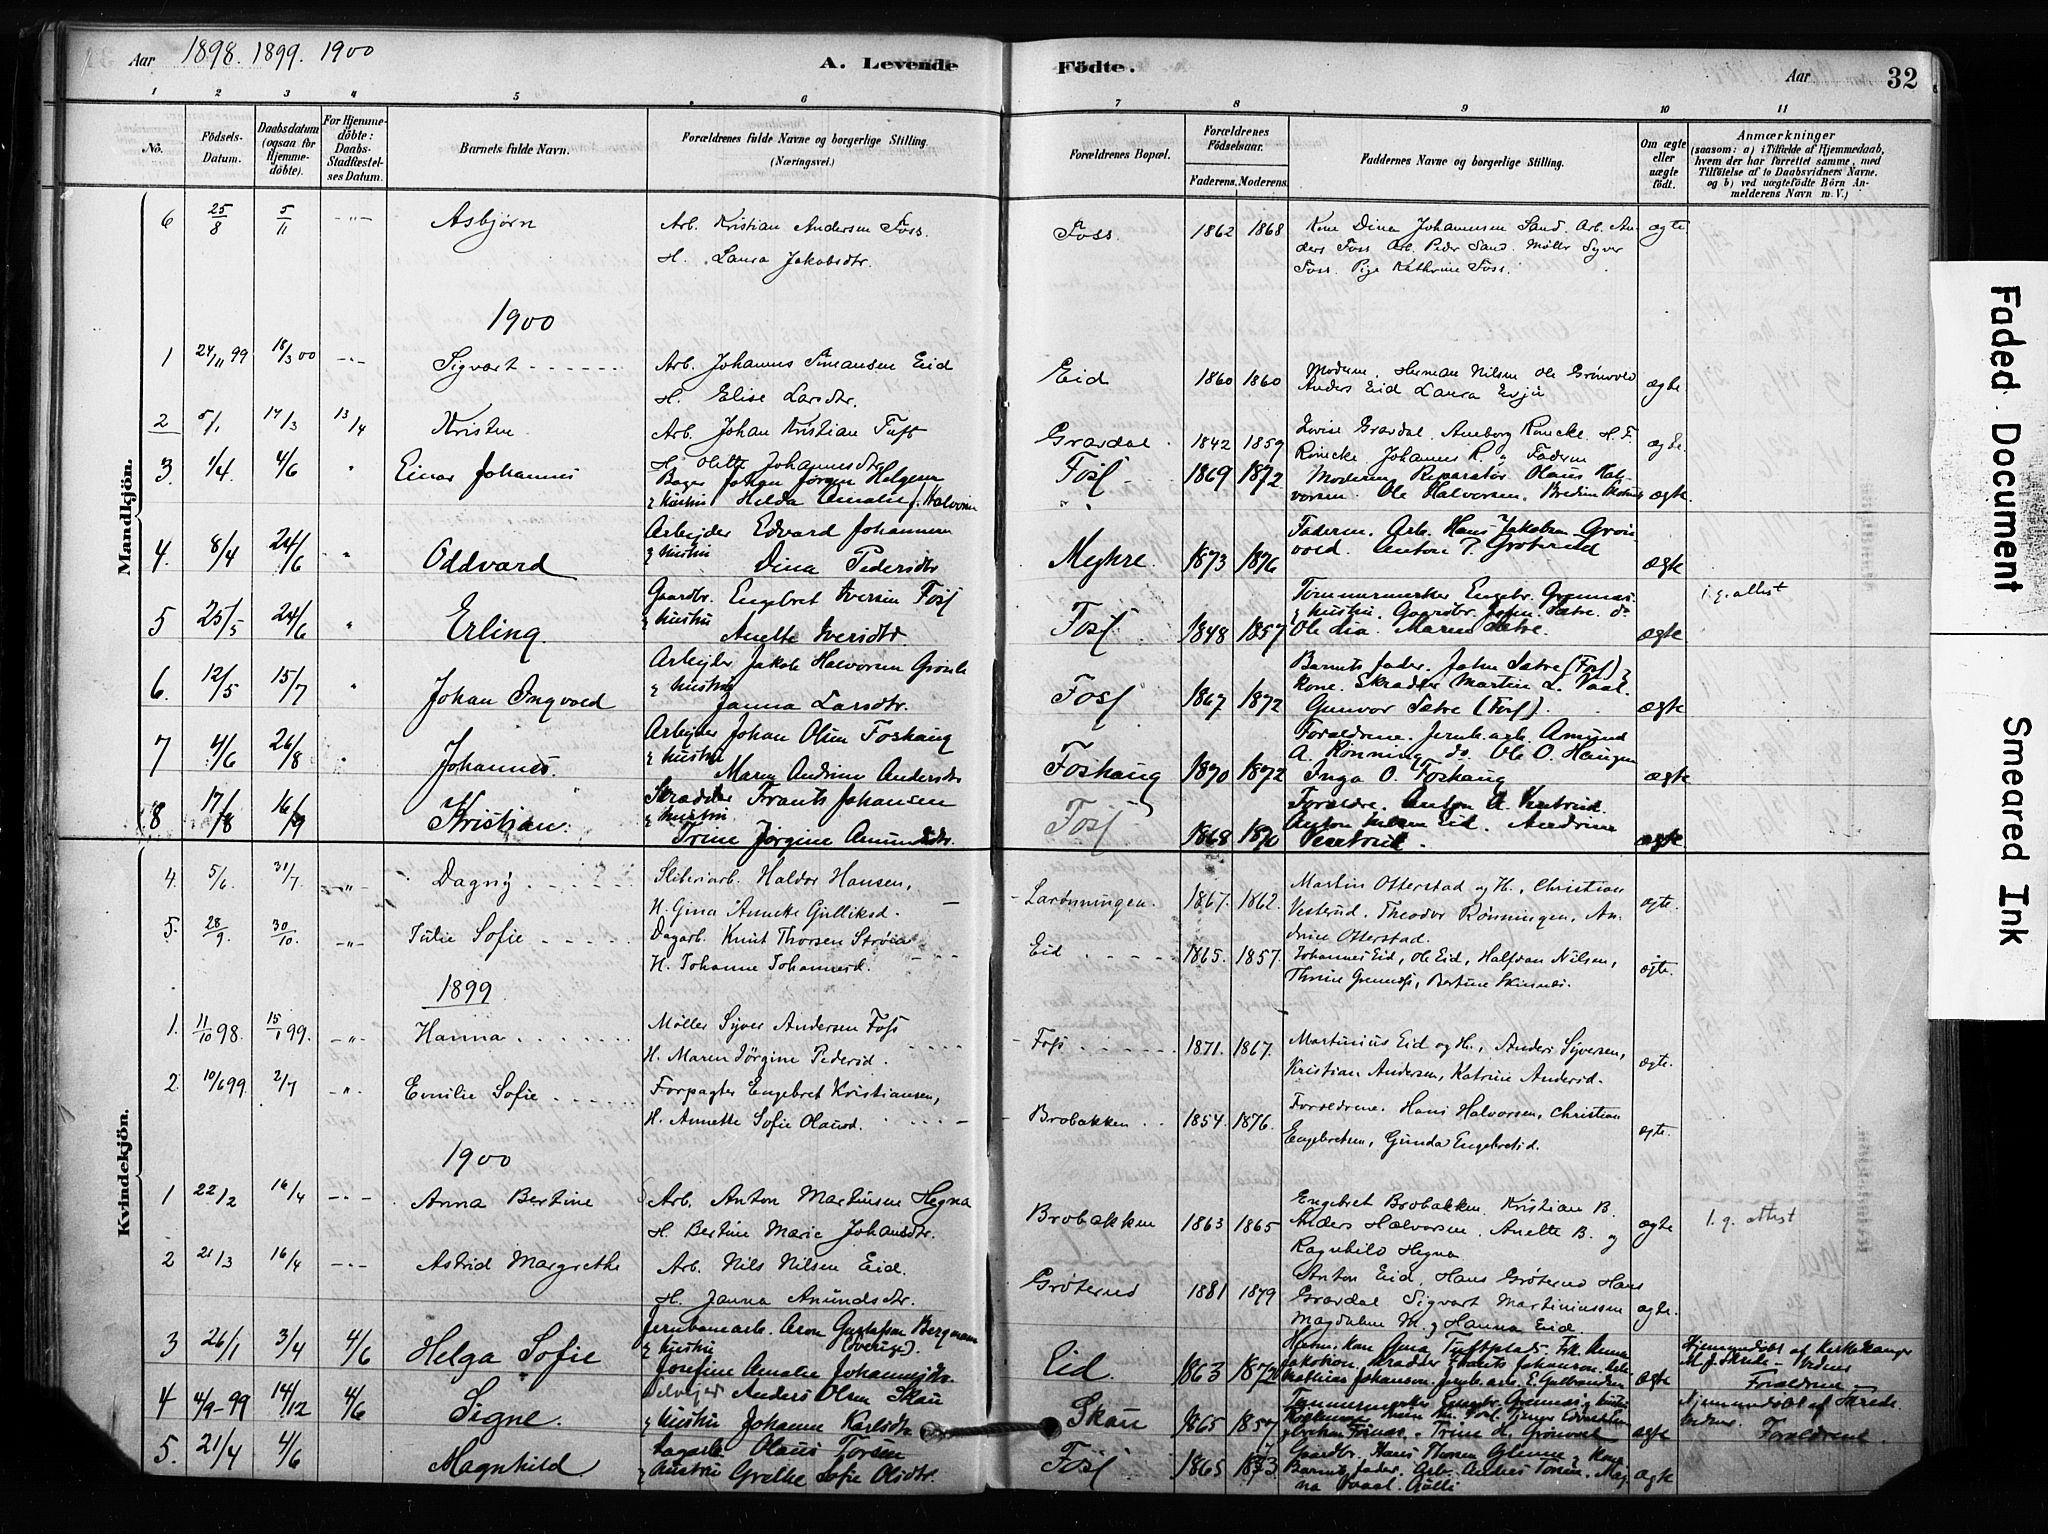 Aar 1898. 1899. 1900
A. Levende Födte.
Aar
32
1 2 3 4 5 6 7 8 9 10 11
No.
Födsels-Datum.
Daabsdatum (ogsaa for Hjemmedöbte).
For Hjemmedöbte: Daabs-Stadfæstelses Datum.
Barnets fulde Navn.
Forældrenes fulde Navne og borgerlige Stilling. (Næringsvei.)
Forældrenes Bopæl.
Forældrenes Födselsaar.
Faderens. Moderens.
Faddernes Navne og borgerlige Stilling.
Om ægte eller uægte födt.
Anmærkninger
(saasom: a) i Tilfælde af Hjemmedaab, hvem der har forrettet samme, med Tilföielse af to Daabsvidners Navne, og b) ved uægtefödte Börn Anmelderens Navn m. V.)
Mandkjön.
6 25/8 5/11 -"- Asbjørn Arb. Kristian Andersen Foss. Foss. 1862 1868 Kone Dina Johannesen Sand. Arb. An- ægte
H. Laura Jakobsdtr. ders Foss Arb. Peder Sand. Møller Syver
Foss. Pige Kathrine Foss.
1900
1 24/11 99 18/3 00 -"- Sigvart Arb. Johannes Simansen Eid Eid 1860 1860 Moderen, Herman Nilsen Ole Grönvold ægte
H. Elise Larsdtr. Anders Eid Laura Evju
2 5/1 17/3 13/4 Kristen Arb. Johan Kristian Tuft Gravdal 1842 1859 Lovise Gravdal. Roncke. H. F. ægte.
H. Johannesdtr. Johannes R. Faderen
3. 1/4. 4/6 " Einar Johannes Bager Johan Jörgen Helgesen Fosf 1869 1872 Moderen Reparatör Olaus Hal- ægte.
& hustru Helda Amalie f. Halvorsen vorsen. Ole Halvorsen.
4. 8/4 24/6 " Oddvard Arbejder Edvard Johannesen Meghre. 1873 1876 Faderen. Arb. Hans Jakobsen Gron ægte
& hustru Dina Pedersdtr vold. Anton P. Grøterud
5 25/5 24/6 " Erling. Gaardbr. Engebret Iversen Fosf Fosf 1848 1857 Tømmermerker Engebr. ægte i.g. attest
& hustru Anette Iversdtr & hustru. Gaardbr. John Sætre. do
Ole dia. Maren Sætre.
6. 12/5 15/7 " Johan Ingvold Arbejder Jakob Halvorsen Fosf 1867 1872 Barnets fader. John Sætre (Fosf) & ægte
& hustru Janna Larsdtr. kone. Skrædder Martin L. Vaal.
Gunvor Sætre (Fosf).
7 4/6 26/8 " Johannes. Arbejder Johan Olsen Foshaug Foshaug 1870 1872 Forældrene. Jernb. arb. Amund ægte
& hustru Maren Andrine Andersdtr A. Rønning do. Ole O. Haugen
Inga O. Foshaug
8 17/8 16/9 Kristian. Skrædder Frants Johansen Fosf 1868 1870 Forældre. Anton A. ægte
& hustru Trine Jørgine Amundsdtr. Anton Nilsen Eid. Andrine
Kvindekjön.
4. 5/6. 31/7. -"- Dagny Sliberiarb. Haldor Hansen, Larönningen. 1867. 1862. Martin Otterstad og H., Christian ægte.
H. Gina Annette Gulliksd. Vesterud, Theodor Rönningen, An-
drine Otterstad.
5. 28/9. 30/10. -"- Julie Sofie Dagarb. Knut Thorsen Eid 1865. 1857. Johannes Eid, Ole Eid, Halfdan Nilsen, ægte.
H. Johanne Johannesd. Thrine, Bertine
1899
1. 11/10 98. 15/1 99. -"- Hanna Møller Syver Andersen Fofs Fofs 1871. 1867. Martinius Eid og H., Anders Syversen, ægte.
H. Maren Jörgine Pedersd. Kristian Andersen, Katrine Andersd.
2. 10/6 99. 2/7 -"- Emilie Sofie Forpagter Engebret Kristiansen, Brobakken 1854. 1876. Forældrene. Hans Halvorsen, Christian ægte.
H. Annette Sofie Olausd. Engebretsen, Gunda Engebretsd.
1900
1 22/2 16/4 -"- Anna Bertine Arb. Anton Martinsen Hegna Brobakken 1863 1865 Engebret Brobakken. Kristian B. ægte I. g. attest
H. Bertine Marie Johansdtr. Anders Halvorsen. Anette B. og
Ragnhild Hegna
2 21/3 16/4 -"- Astrid Margrethe Arb. Nils Nilsen Eid. Gröterud 1881 1879 Anton Eid, Hans Gröterud Hans ægte.
H. Janna Amundsdtr. Gravdal Sigvart Martiniussen
Magdalene M. og Hanna Eid.
3 26/1 3/4 4/6 Helga Sofie Jernbanearb. Aron Gustafson Bergman (Sverige). Eid. 1863 ægte Hjemmedöbt af Kirkesanger
& hustru Josefine Amalie Johannesdtr. M. J. Skrede. Vidner
Forældrene
4 4/9-99 14/12 4/6 Signe. Anders Olsen Skau Skau 1865 1857 ægte Hjemmedöbt af Skrede.
& hustru Johanne Karlsdtr Vidner. Forældrene.
5. 21/4 4/6 Magnhild Dagarb. Olaus Torsen Fosf 1865 1873 Gaardbr. Hans Thorsen & Kone ægte
& hustru Grethe Sofie Olsdtr. Barnets fader. Arb. Andres Torsen. Maj
na Vaal.
Faded Document
Smeared Ink